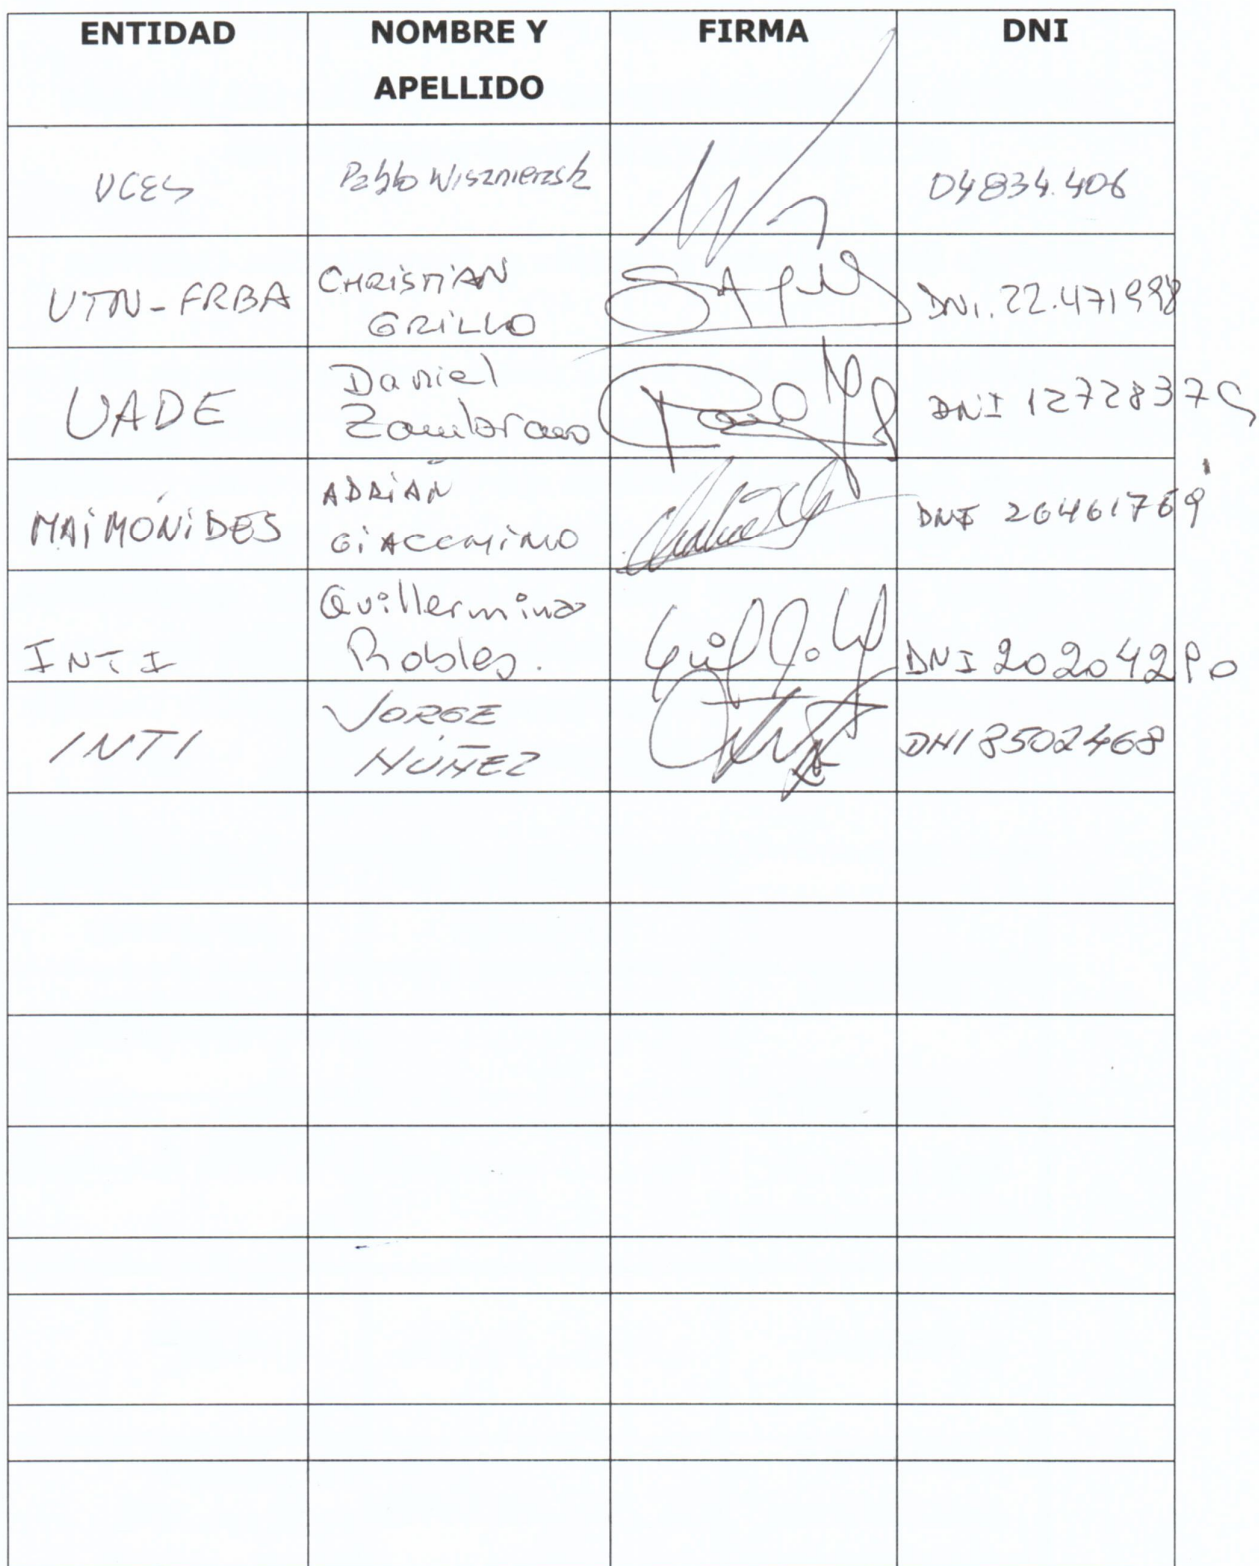 ENTIDAD
NOMBRE Y
APELLIDO
FIRMA
DNI
UCES
Pablo Wisznierski
04834.406
UTN-FRBA
CHRISTIAN
GRILLO
DNI. 22.471998
UADE
Daniel
Zambrano
DNI 12728375
MAIMÓNIDES
ADRIÁN
GIACCOMINO
DNI 26461769
INTI
Guillermina
Robles.
DNI 20204290
INTI
JORGE
NÚÑEZ
DNI 8502468